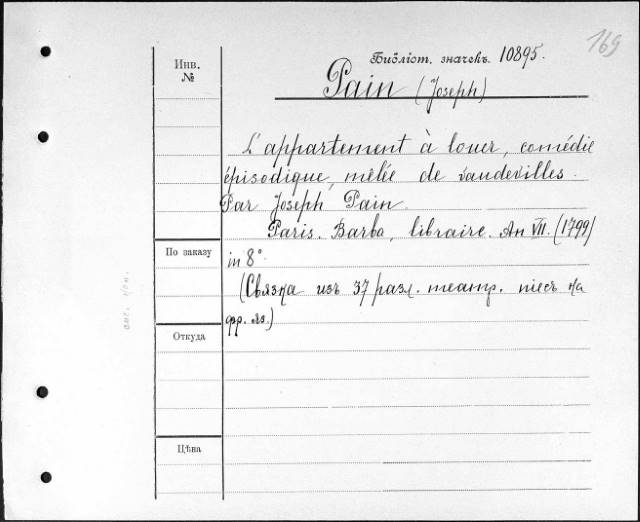 169
Библіот. значекъ. 10895.
Pain (Joseph)
Инв.
№
L'appartement à louer, comédie
épisodique, mêlée de vaudevilles.
Par Joseph Pain.
Paris. Barba, libraire. An VII. (1799)
По заказу
in 8°.
(Связка изъ 37 разл. театр. пiесъ на
фр. яз.)
Откуда
Цѣна